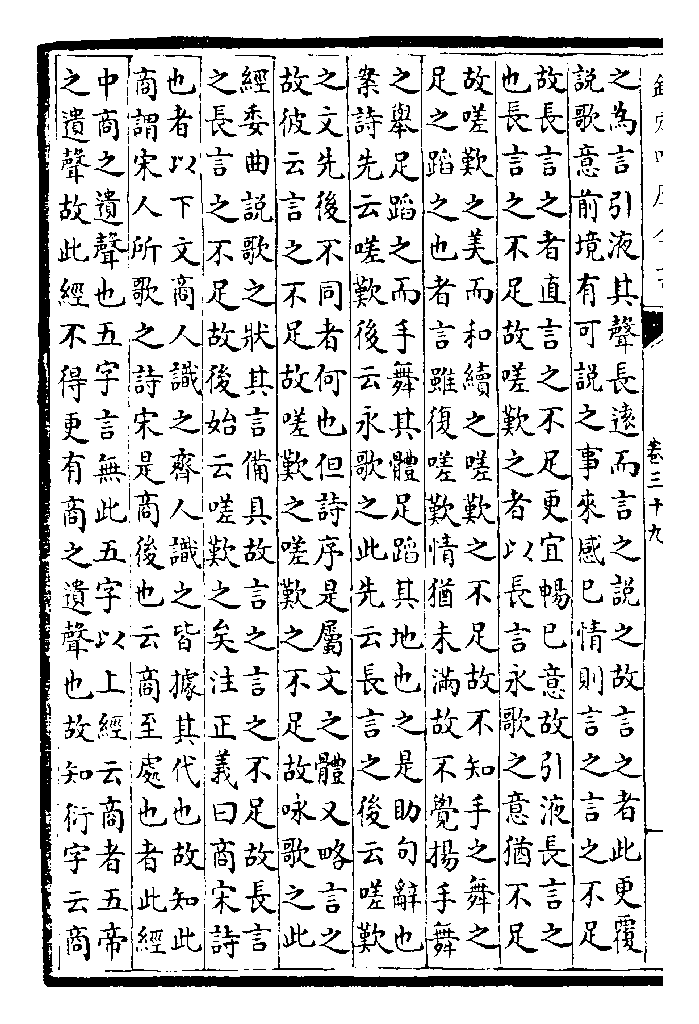 卷三十九
之為言引液其聲長遠而言之說之故言之者此更覆
說歌意前境有可說之事來感已情則言之言之不足
故長言之者直言之不足更宜暢已意故引液長言之
也長言之不足故嗟歎之者以長言永歌之意猶不足
故嗟歎之美而和續之嗟歎之不足故不知手之舞之
足之蹈之也者言雖復嗟歎情猶未滿故不覺揚手舞
之舉足蹈之而手舞其體足蹈其地也之是助句辭也
案詩先云嗟歎後云永歌之此先云長言之後云嗟歎
之文先後不同者何也但詩序是屬文之體又略言之
故彼云言之不足故嗟歎之嗟歎之不足故咏歌之此
經委曲說歌之狀其言備具故言之言之不足故長言
之長言之不足故後始云嗟歎之矣注正義曰商宋詩
也者以下文商人識之齊人識之皆據其代也故知此
商謂宋人所歌之詩宋是商後也云商至處也者此經
中商之遺聲也五字言無此五字以上經云商者五帝
之遺聲故此經不得更有商之遺聲也故知衍字云商